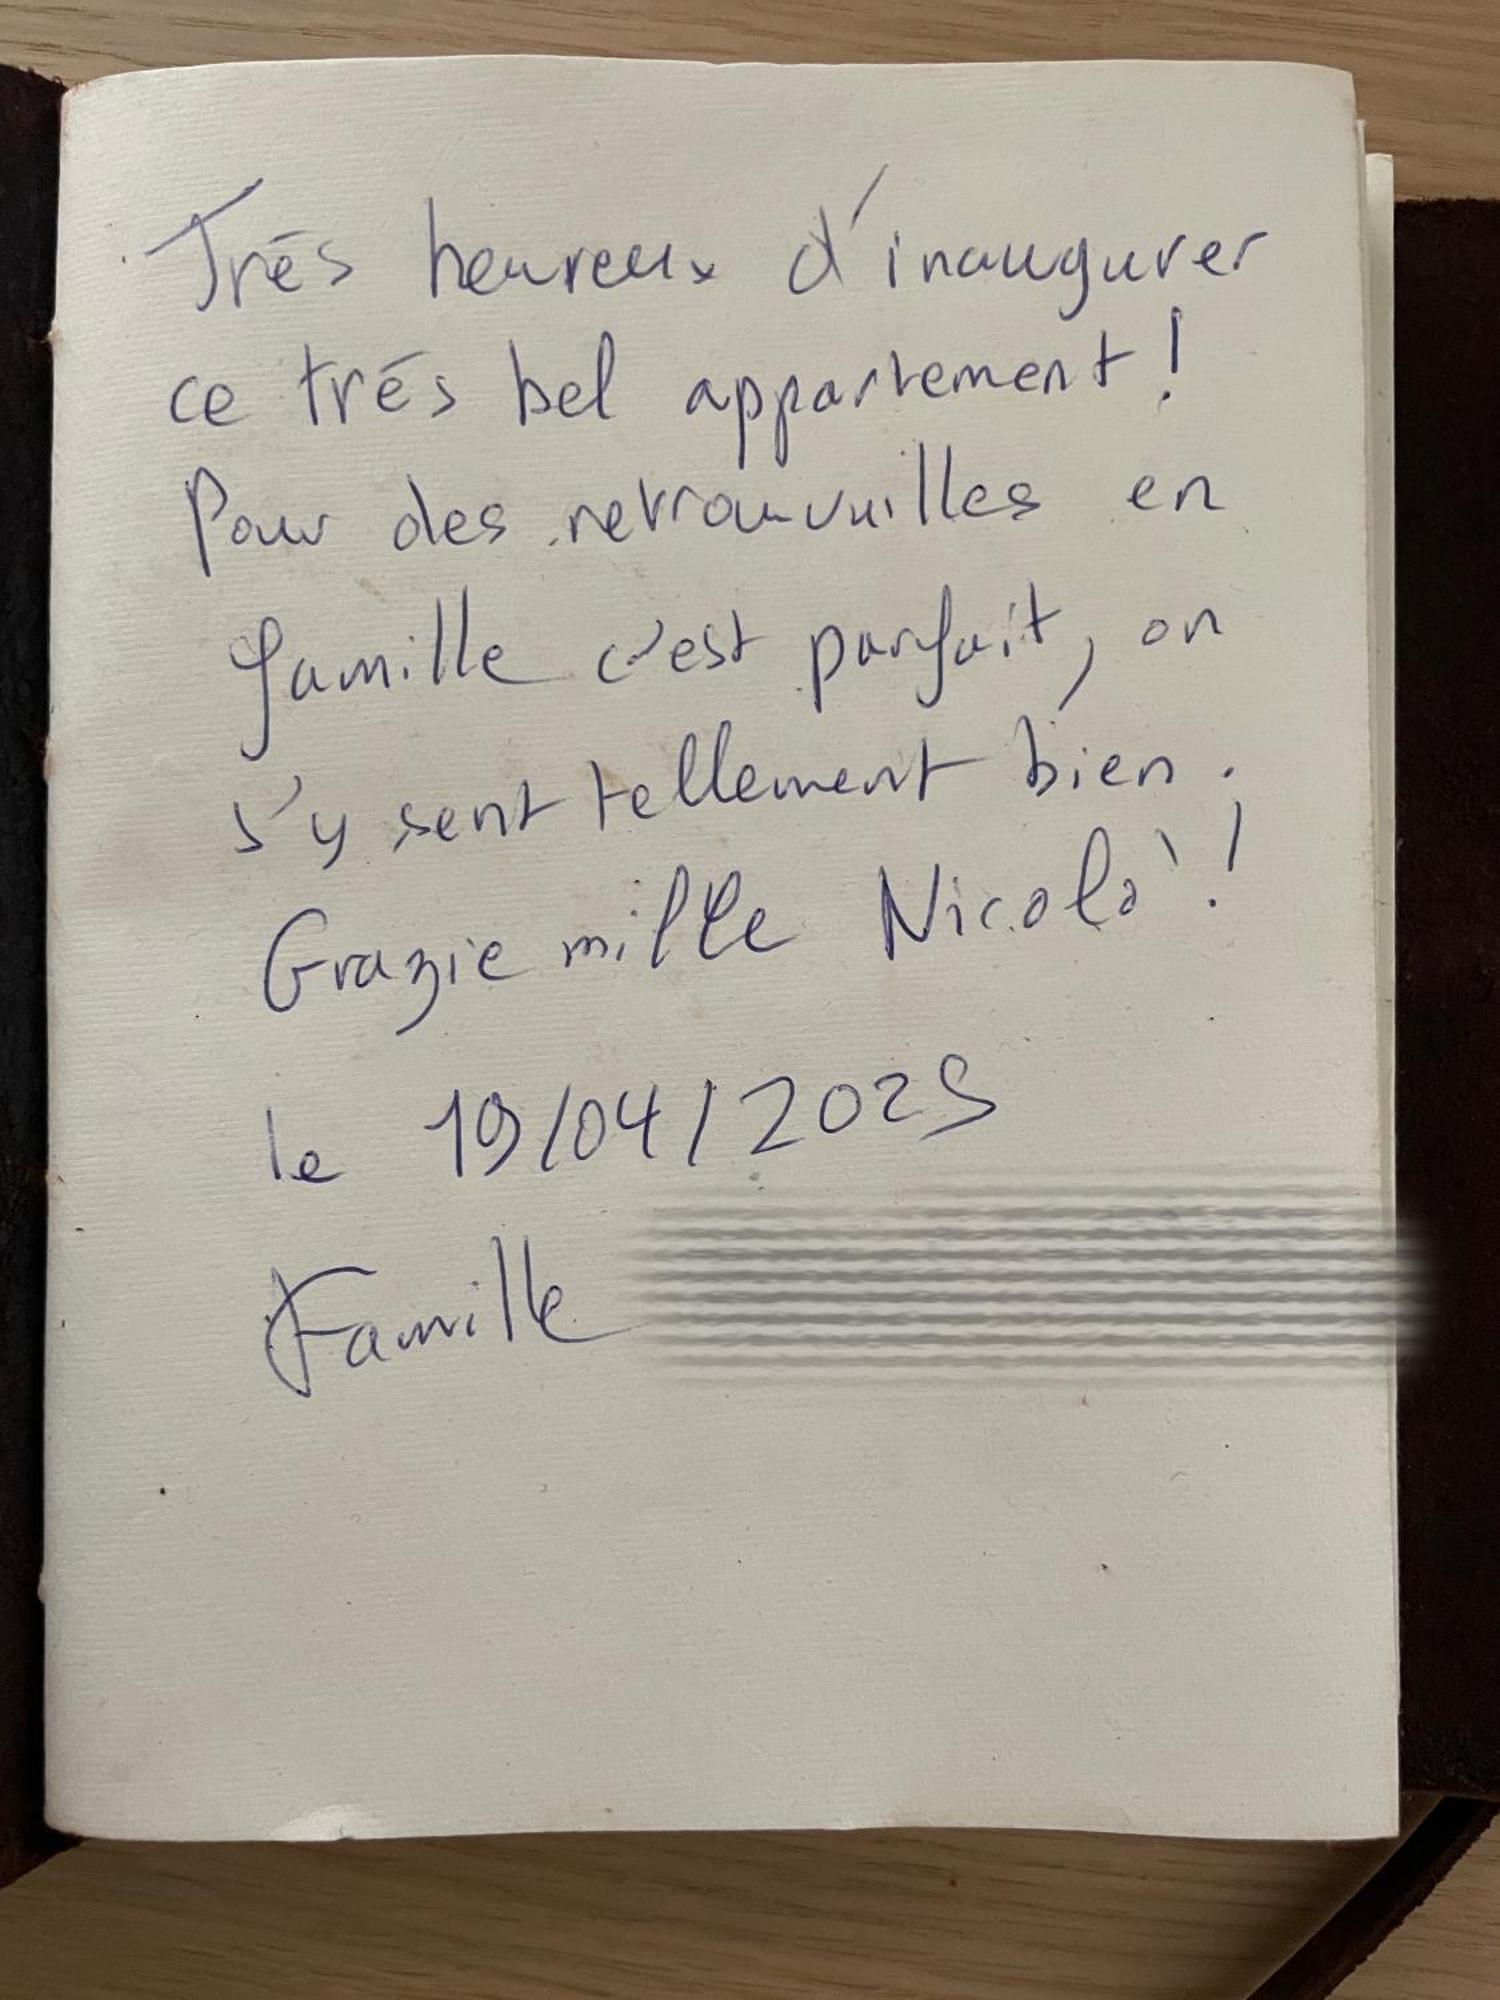 Trés heureux d'inaugurer
ce trés bel appartement !
Pour des retrouvailles en
famille c'est parfait, on
s'y sent tellement bien.
Grazie mille Nicolò !
le 19/04/2025
Famille